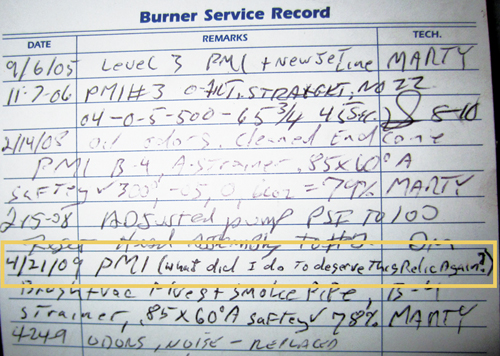 Burner Service Record
DATE REMARKS TECH.
9/6/05 Level 3 PMI + New Jet Line MARTY
11-7-06 PMI #3 NO 22
04-0-5-500-65 3/4 45 sec. 8-10
2/14/08 oil odors, Cleaned End Cone
PMI B-4, A-strainer, .85x60°A
Saftey √ 300°, -.05, 0, = 79% MARTY
2-15-08 ADJusted pump PSI TO 100
Head Assembly
4/21/09 PMI (What did I do To deserve This Relic Again?)
Brush+vac Flues + smoke pipe, B-4
Strainer, .85x60°A saftey √ 78% MARTY
4249 ODORS, NOISE - REPLACED